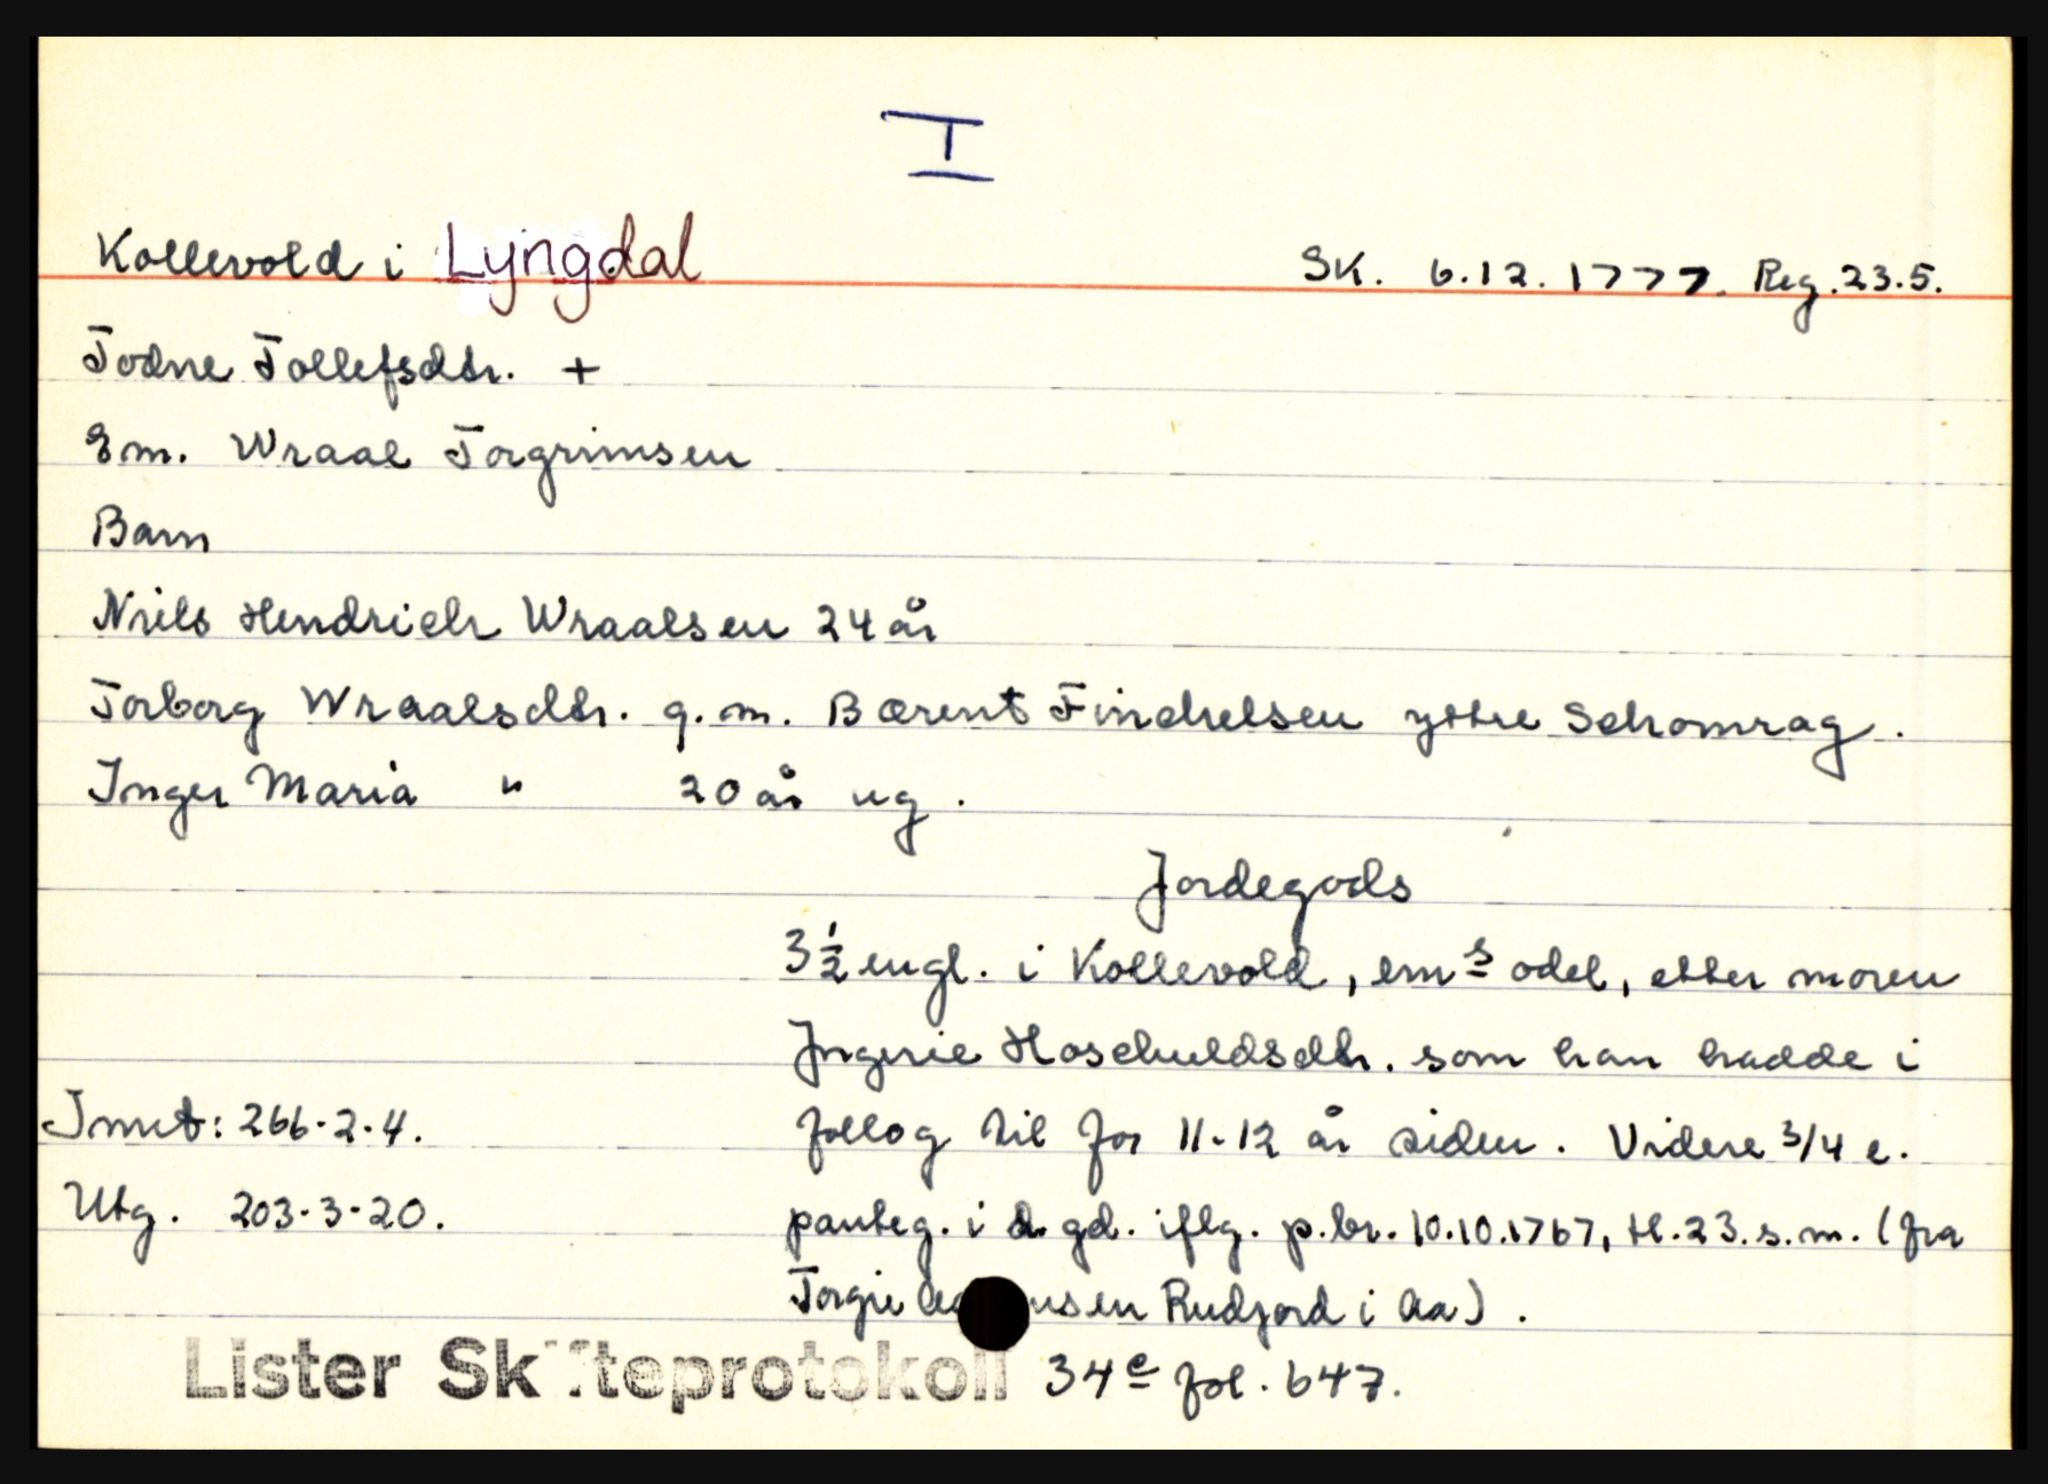 I
Kollevold i Lyngdal SK. 6.12.1777. Reg. 23.5.
Todne Tollefsdtr. +
Em. Wraal Torgrimsen
Barn
Niels Hendrich Wraalsen 24 år
Torborg Wraalsdtr. g.m. Bærent Finchelsen yttre Schomrag.
Inger Maria " 20 år ug.
Jordegods
3½ engl. i Kollevold, ems odel, etter moren
Ingerie Hoschuldsdtr. som han hadde i
follog til for 11-12 år siden. Videre 3/4 e.
Innt: 266-2-4.
panteg. i d. gd. iflg. p.br. 10.10.1767, tl. 23. s.m. (fra
Utg. 203-3-20.
Torgie Rudjord i Aa).
Lister Skifteprotokoll 34e fol. 647.